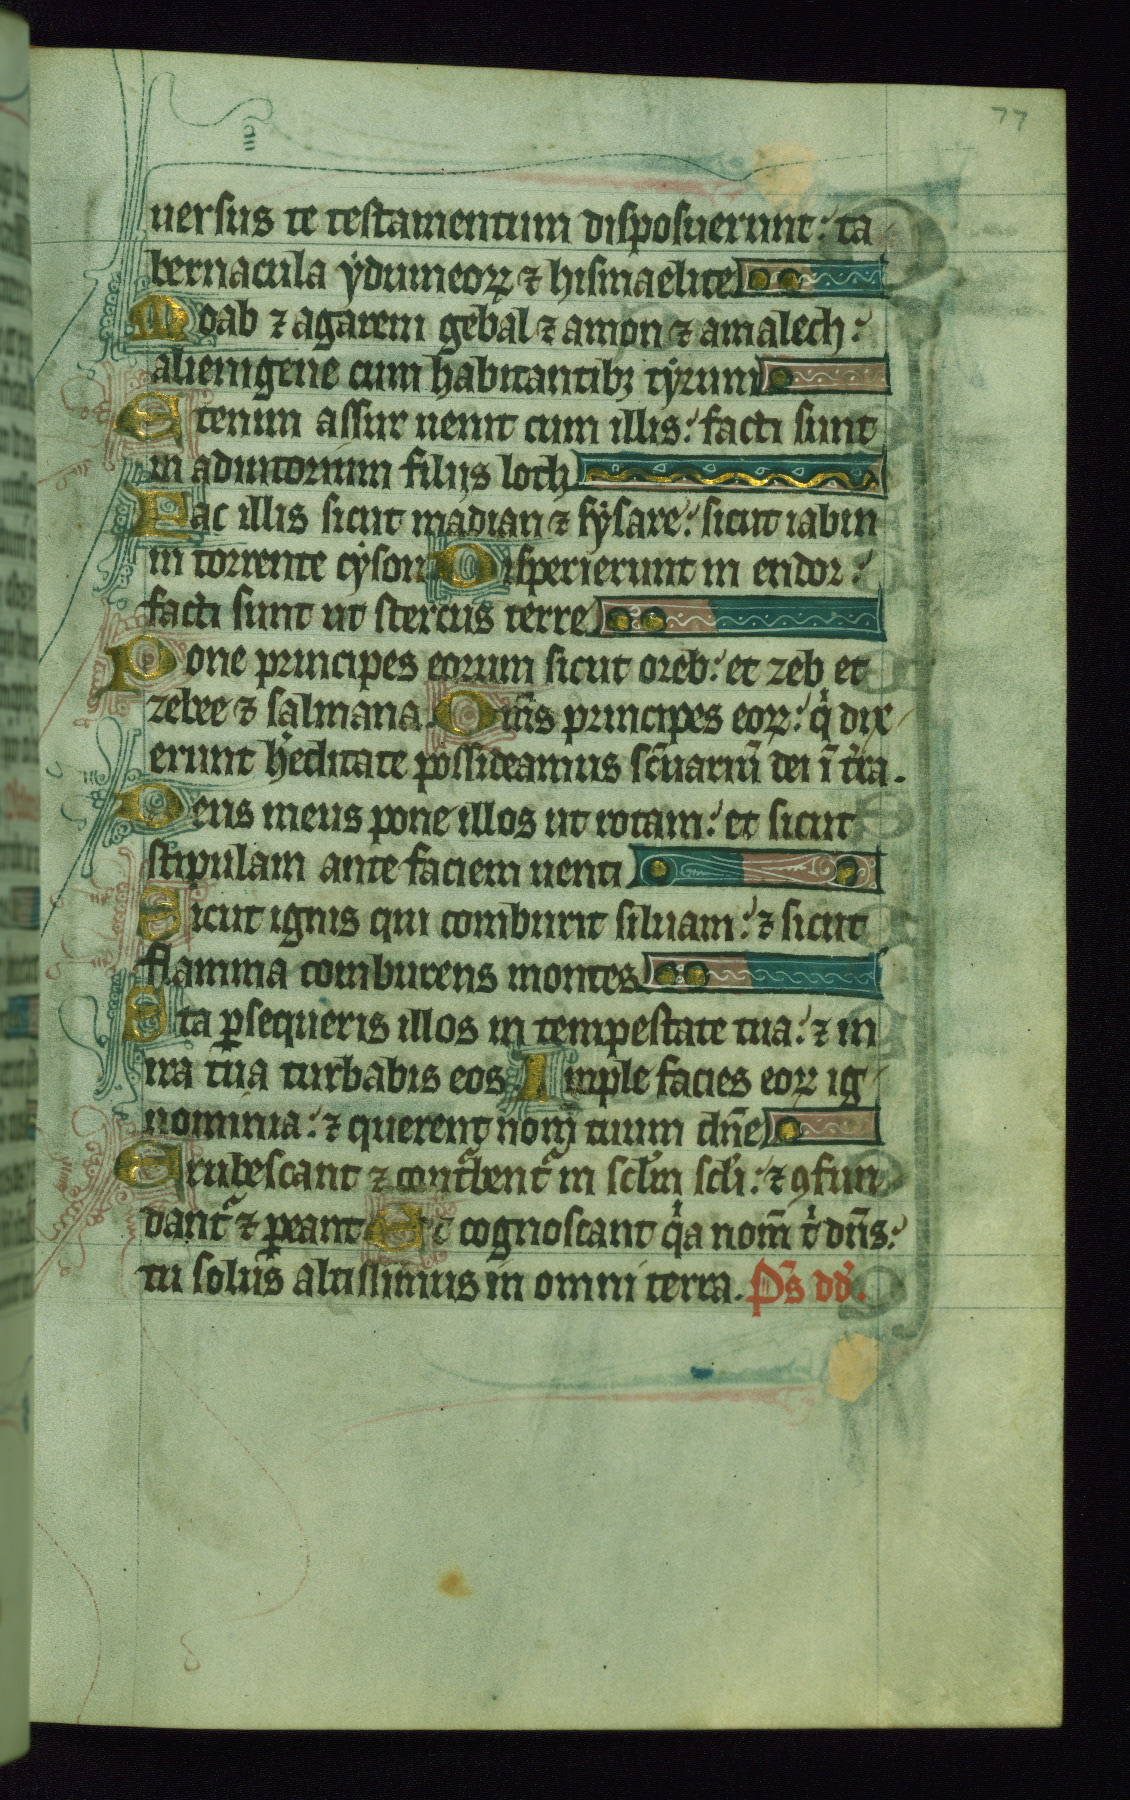 77
uersus te testamentum disposuerunt: ta
bernacula ẏdumeoꝝ ⁊ hismaelite
Moab ⁊ agareni gebal ⁊ amon ⁊ amalech:
alienigene cum habitantibꝫ tẏrum
Etenim assur uenit cum illis: facti sunt
in adiutorium filijs loth
Fac illis sicut madian ⁊ sẏsare: sicut iabin
in torrente cẏson Disperierunt in endor:
facti sunt ut stercus terre
Pone principes eorum sicut oreb: et zeb et
zebee ⁊ salmana Om̄s principes eoꝝ: q̇ dix
erunt h̓editate possideamus sc̄uariū dei ī t̓ra.
Deus meus pone illos ut rotam: et sicut
stipulam ante faciem uenti
Sicut ignis qui comburit siluam: ⁊ sicut
flamma comburens montes
Ita ꝑsequeris illos in tempestate tua: ⁊ in
ira tua turbabis eos Imple facies eoꝝ ig
nominia: ⁊ querent nom̄ tuum dn̄e
Erubescant ⁊ cont̓bent᷑ in sclm̄ scli: ⁊ ꝯfun
dant᷑ ⁊ ꝑeant Et cognoscant q̇a nom̄ ṫ dn̄s:
tu solus altissimus in omni terra. Ps̄ dd̓.